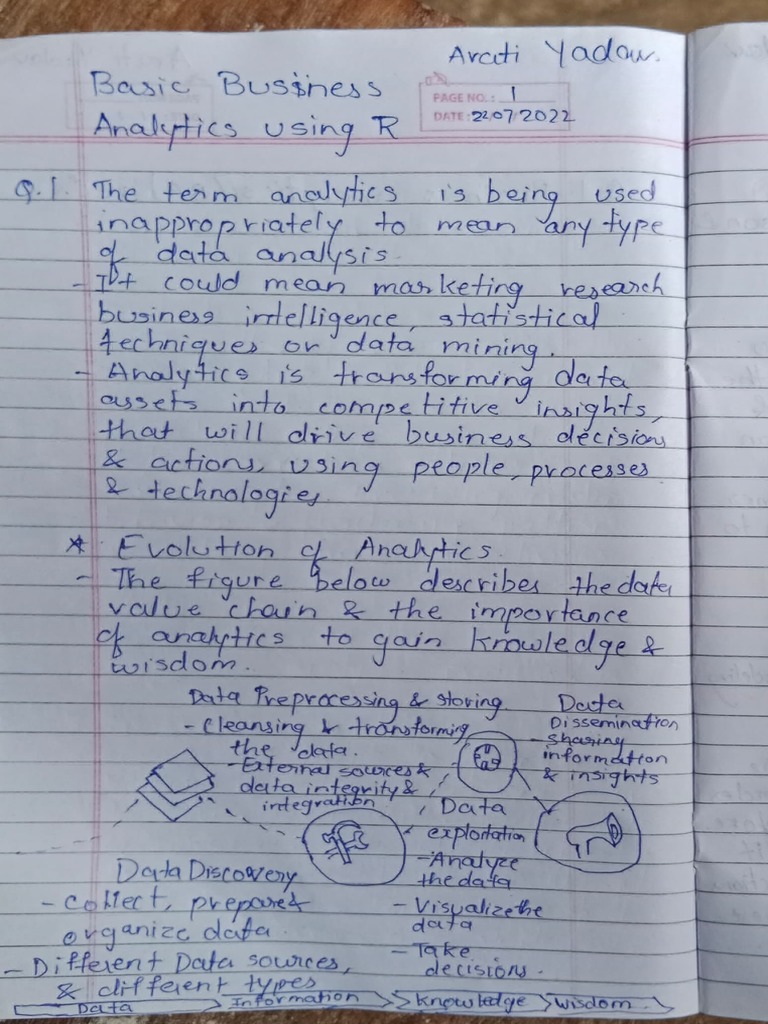 Arati Yadav.
Basic Business
Analytics using R
PAGE NO.: 1
DATE: 22/07/2022
Q.1. The term analytics is being used
inappropriately to mean any type
of data analysis.
- It could mean marketing research
business intelligence, statistical
techniques or data mining.
- Analytics is transforming data
assets into competitive insights,
that will drive business decisions
& actions, using people, processes
& technologies.
* Evolution of Analytics.
- The figure below describes the data
value chain & the importance
of analytics to gain knowledge &
wisdom.
Data Preprocessing & storing.
- Cleansing & transforming
the data.
- External sources &
data integrity &
integration
Data
Dissemination
- sharing
information
& insights
Data Discovery
- collect, prepare &
organize data.
- Different Data sources,
& different types
Data
exploitation
- Analyze
the data
- Visualize the
data
- Take
decisions.
Data Information knowledge wisdom